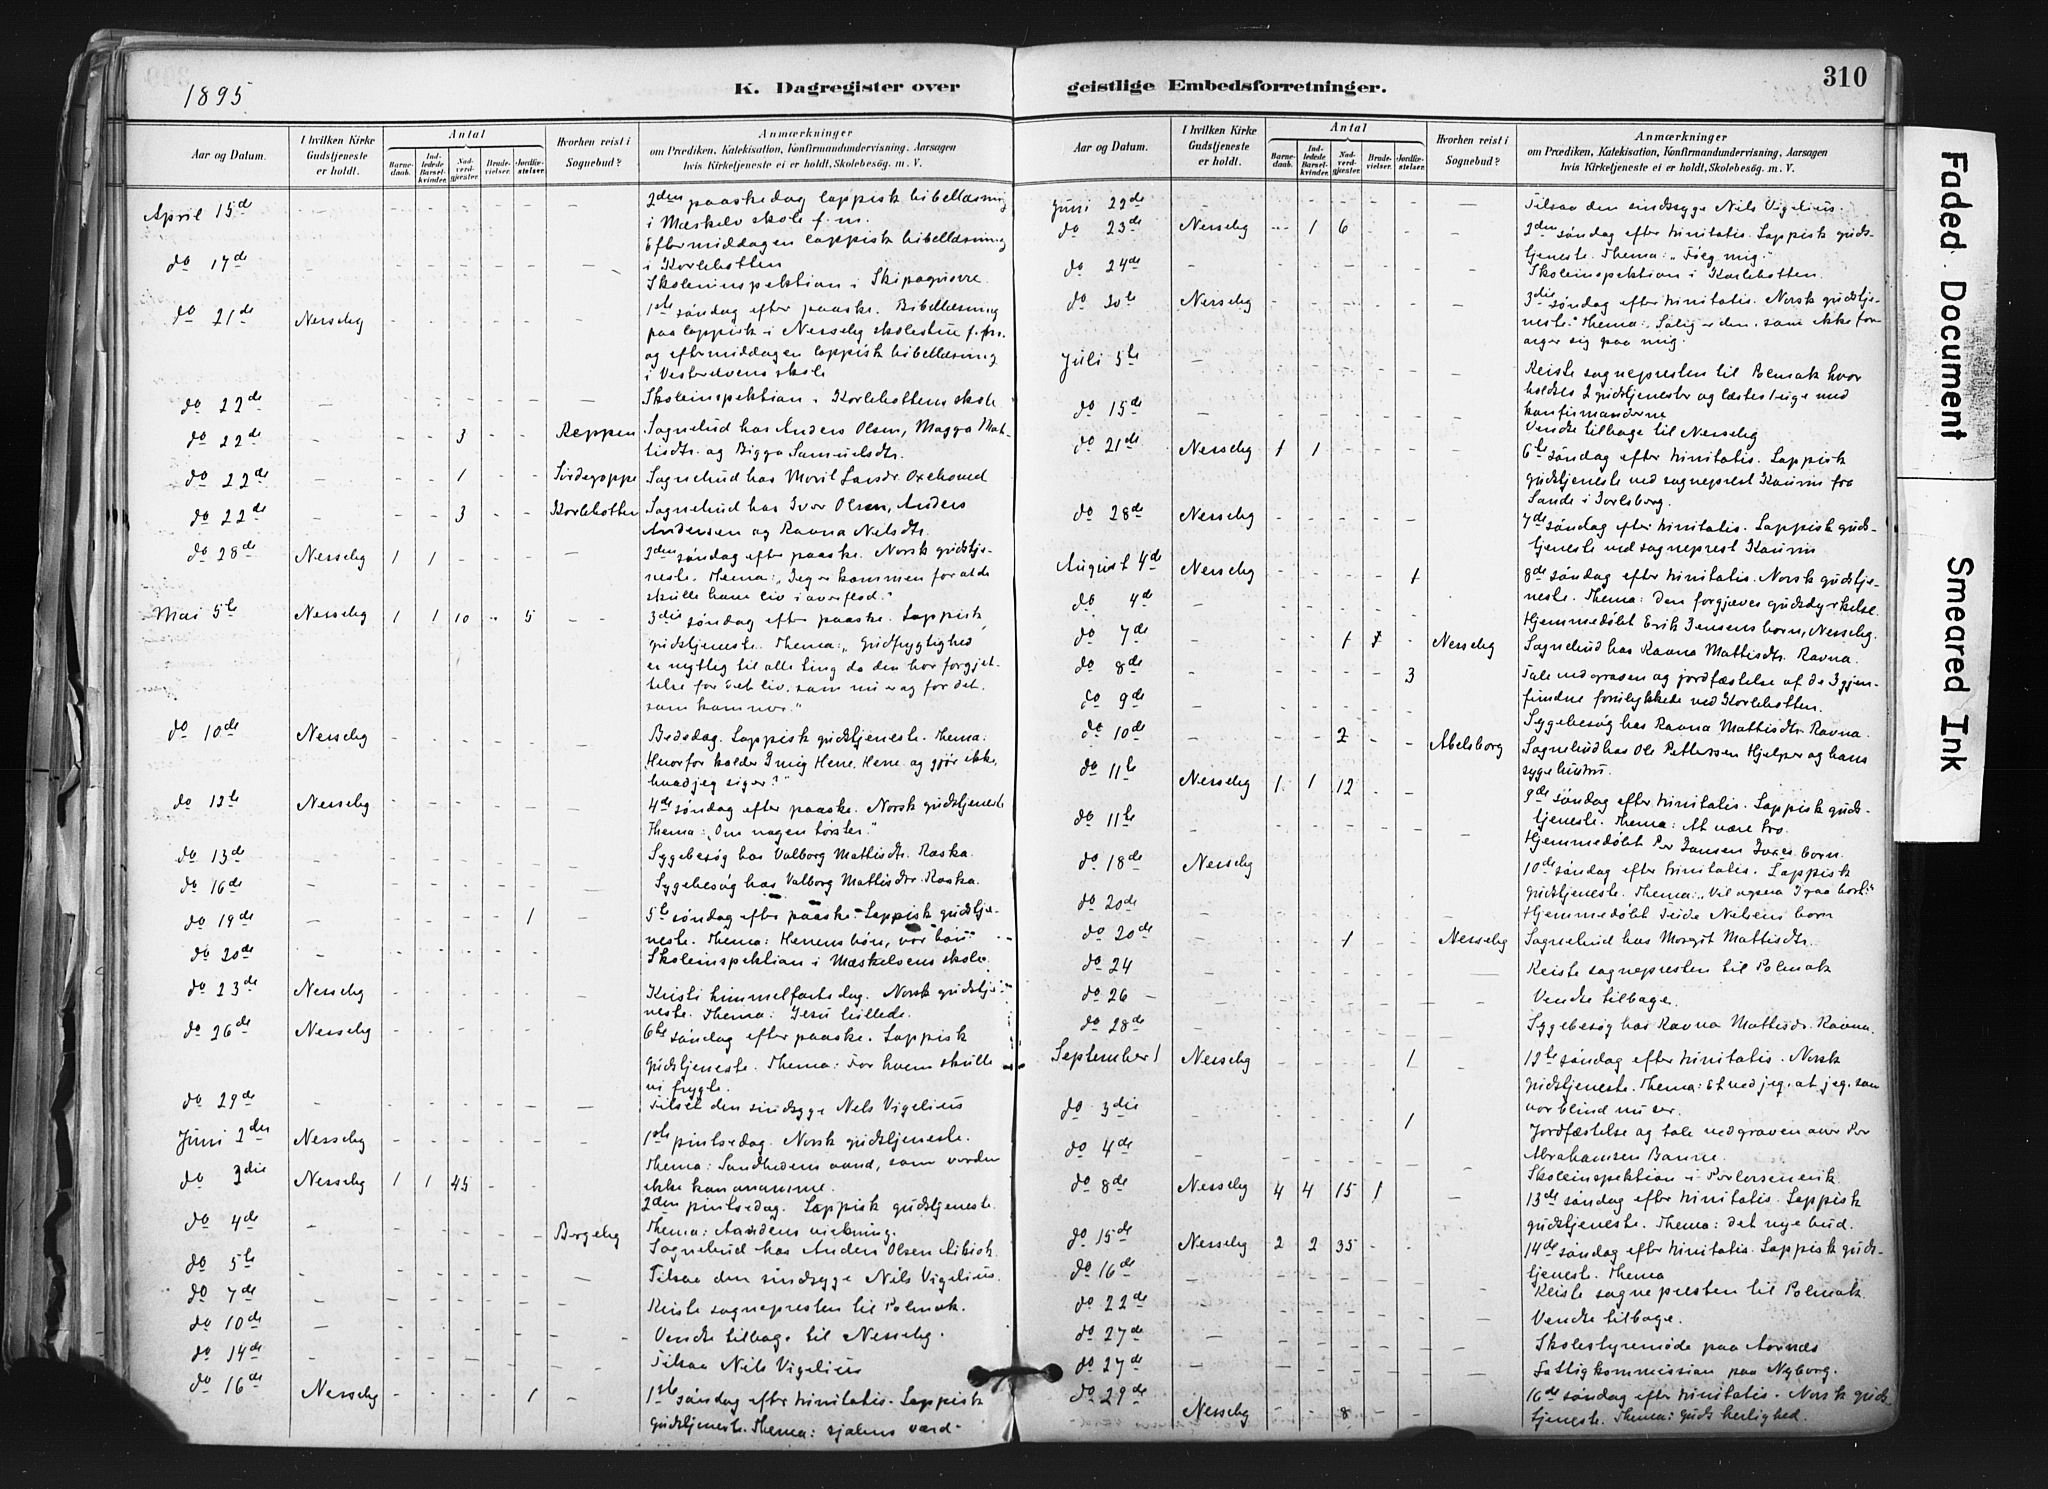 1895
K. Dagregister over
geistlige Embedsforretninger.
310
Aar og Datum.
I hvilken Kirke Gudstjeneste er holdt.
Antal
Barnedaab.
Indledede Barselkvinder.
Nadverdgjester.
Brudevielser.
Jordfæstelser.
Hvorhen reist i Sognebud?
Anmærkninger
om Prædiken, Katekisation, Konfirmandundervisning, Aarsagen
hvis Kirketjeneste ei er holdt, Skolebesøg. m. V.
April 15de - - - - - - - 2den paaskedag lappisk bibellæsning
i Mæskelv skole f.m.
Eftermiddagen lappisk bibellæsning
i Korlebotten
do 17de - - - - - - - Skoleinspektion i Skipagurre.
do 21de Nesseby - - - - - - 1ste søndag efter paaske. Bibellæsning
paa lappisk i Nesseby skolestue f.m.
og eftermiddagen lappisk bibellæsning
i Vesterelvens skole
do 22de - - - - - - - Skoleinspektion i Korlebottens skole
do 22de - - - 3 - - Reppen Sognebud hos Anders Olsen, Magga Mat-
tisdtr. og Bigga Samuelsdtr.
do 22de - - - 1 - - Sognebud hos Marit Larsdr.
do 22de - - - 3 - - Korlebotten Sognebud hos Iver Olsen, Anders
Andersen og Ravna Nilsdtr.
do 28de Nesseby 1 1 - - - - 2den søndag efter paaske. Norsk gudstje-
neste. Thema: "Jeg er kommen for at de
skulle have liv i overflod."
Mai 5te Nesseby 1 1 10 - 5 - 3die søndag efter paaske. Lappisk
gudstjeneste. Thema: "Gudfrygtighed
er nyttig til alle ting da den har forgjet-
telse for det liv, som nu er og for det
som kommer."
do 10de Nesseby - - - - - - Bededag. Lappisk gudstjeneste. Thema:
"Hvorfor kalder I mig Herre, Herre og gjør ikke,
hvad jeg siger?"
do 12te Nesseby - - - - - - 4de søndag efter paaske. Norsk gudstjeneste
Thema: "Om nogen tørster."
do 13de - - - - - - - Sygebesøg hos Valborg Mattisdtr. Raska.
do 16de - - - - - - - Sygebesøg hos Valborg Mattisdtr. Raska.
do 19de - - - - - 1 - 5te søndag efter paaske. Lappisk gudstje-
neste. Thema: Herrens bøn, vor bøn
do 20de - - - - - - - Skoleinspektion i Mæskelvens skole.
do 23de Nesseby - - - - - - Kristi himmelfartsdag. Norsk gudstje-
neste. Thema: Jesu billede.
do 26de Nesseby - - - - - - 6te søndag efter paaske. Lappisk
gudstjeneste. Thema: For hvem skulle
vi frygte.
do 29de - - - - - - - Tilset den sindsyge Nels Vigelius
Juni 2den Nesseby - - - - - - 1ste pintsedag. Norsk gudstjeneste.
Thema: Sandhedens aand, som verden
ikke kan anamme.
do 3die Nesseby 1 1 45 - - 2den pintsedag. Lappisk gudstjeneste.
Thema: Aandens virkning.
do 4de - Bergeby Sognebud hos Anders Olsen
do 5te - - - - - - - Tilsaa den sindsyge Nils Vigelius.
do 7de - - - - - - - Reiste sognepresten til Polmak.
do 10de - - - - - - - Vendte tilbage til Nesseby.
do 14de - - - - - - - Tilsaa Nils Vigelius
do 16de Nesseby - - - - 1 - 1ste søndag efter trinitatis. Lappisk
gudstjeneste. Thema: sjælens værd-
Aar og Datum.
I hvilken Kirke Gudstjeneste er holdt.
Antal
Barnedaab.
Indledede Barselkvinder.
Nadverdgjester.
Brudevielser.
Jordfæstelser.
Hvorhen reist i Sognebud?
Anmærkninger
om Prædiken, Katekisation, Konfirmandundervisning, Aarsagen
hvis Kirketjeneste ei er holdt, Skolebesøg. m. V.
Juni 22de - - - - - - - Tilsaa den sindsyge Nils Vigelius.
do 23de Nesseby - 1 6 - - - 2den søndag efter trinitatis. Lappisk guds-
tjeneste. Thema: "Følg mig."
do 24de - - - - - - - Skoleinspektion i Korlebotten.
do 30te Nesseby - - - - - - 3die søndag efter trinitatis. Norsk gudstje-
neste. Thema: Salig er den, som ikke for-
arger sig paa mig.
Juli 5te - - - - - - - Reiste sognepresten til Polmak hvor
holdtes 2 gudstjenester og læstes 1 uge med
konfirmanderne
do 15de - - - - - - - Vendte tilbage til Nesseby
do 21de Nesseby 1 1 - - - - 6te søndag efter trinitatis. Lappisk
gudstjeneste ved sogneprest Kaurin fra
Sande i Jarlsberg.
do 28de Nesseby - - - - - - 7de søndag efter trinitatis. Lappisk guds-
tjeneste ved sogneprest Kaurin
August 4de Nesseby - - - - 1 8de søndag efter trinitatis. Norsk gudstje-
neste. Thema: Den forgjæves gudsdyrkelse.
do 4de - - - - - - - Hjemmedøbt Erik Jensens barn, Nesseby.
do 7de - - - 1 - - Nesseby Sognebud hos Ravna Mattisdtr. Ravna.
do 8de - - - - - 3 - Tale ved graven og jordfæstelse af de 3 gjen-
fundne forulykkede ved Korlebotten.
do 9de - - - - - - - Sygebesøg hos Ravna Mattisdtr. Ravna.
do 10de - - - 2 - - Abelsborg Sognebud hos Ole Pettersen Hjelper og hans
syge hustru.
do 11te Nesseby 1 1 12 - - 9de søndag efter trinitatis. Lappisk guds-
tjeneste. Thema: At være tro.
do 11te - - - - - - - Hjemmedøbt Per Jansen barn.
do 18de Nesseby - - - - - - 10de søndag efter trinitatis. Lappisk
gudstjeneste. Thema: "Vil ogsaa I gaa bort?"
do 20de - - - - - - - Hjemmedøbt Nilsens barn
do 20de - - - 1 - - Nesseby Sognebud hos Margit Mattisdtr.
do 24 - - - - - - - Reiste sognepresten til Polmak
do 26 - - - - - - - Vendte tilbage.
do 28de - - - - - - - Sygebesøg hos Ravna Mattisdr. Ravna.
September 1 Nesseby - - - - 1 - 12te søndag efter trinitatis. Norsk
gudstjeneste. Thema: Et ved jeg, at jeg, som
var blind nu ser.
do 3die - - - - - 1 Jordfæstelse og tale ved graven over Per
Abrahamsen Banne.
do 4de - - - - - - - Skoleinspektion i
do 8de Nesseby 4 4 15 1 - 13de søndag efter trinitatis. Lappisk
gudstjeneste. Thema: det nye bud.
do 15de Nesseby 2 2 35 - - 14de søndag efter trinitatis. Lappisk guds-
tjeneste. Thema
do 16de - - - - - - - Reiste sognepresten til Polmak
do 22de - - - - - - - Vendte tilbage.
do 27de - - - - - - - Skolestyremøde paa
do 27de - - - - - - - Fattigkommission paa Nyborg.
do 29de Nesseby - - 8 - - 16de søndag efter trinitatis. Norsk guds-
tjeneste. Thema: guds herlighed.
Faded Document
Smeared Ink